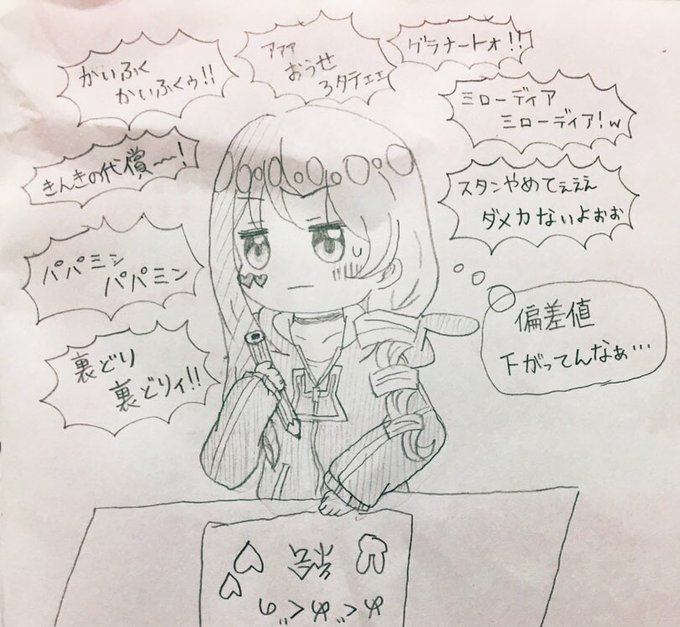 かいふく
かいふくゥ!!
アァァ
おうせ
3タテェェ
グラナートォ!!
ミローディア
ミローディア!w
きんきの代償〜〜!
スタンやめてぇぇぇ
ダメカないよぉぉ
パパミン
パパミン
裏どり
裏どりィ!!
偏差値
下がってんなぁ…